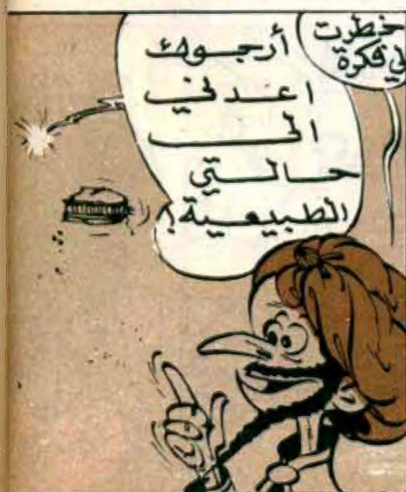 خطرت
لي فكرة
أرجوك
اعدني
الى
حالتي
الطبيعية؟